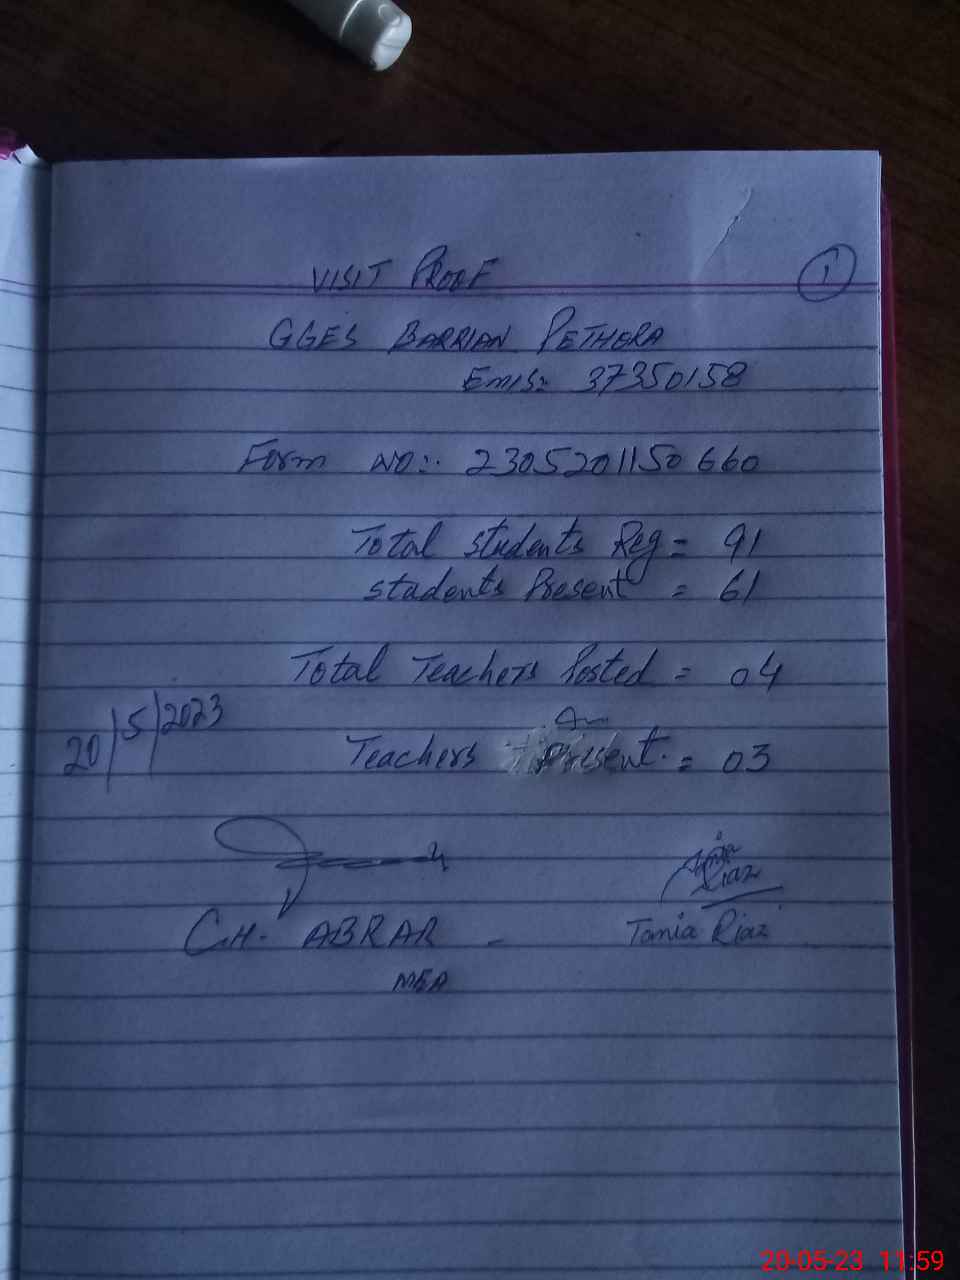 VISIT PROOF
1
GGES BARRIAN PETHORA
EMIS: 37350158
Form NO:. 2305201150660
Total students Reg = 91
students Present = 61
Total Teachers Posted = 04
20/5/2023
Teachers Present. = 03
Tania Riaz
CH. ABRAR -
Tania Riaz
MEA
20-05-23 11:59